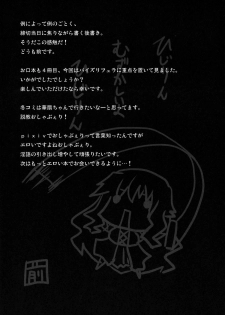 例によって例のごとく、
締切当日に焦りながら書く後書き。
そうだこの感触だ！
どうも前です。
お口本も4冊目、今回はパイズリフェラに重点を置いて見ました。
いかがでしたでしょうか？
楽しんでいただけたなら幸いです。
冬コミは華扇ちゃんで行きたいなーと思ってます。
説教おしゃぶぇり！
pixivでおしゃぶぇりって言葉知ったんですが
エロいですよねおしゃぶぇり。
淫語の引き出し増やして頑張りたいです。
次はもっとエロい本でお会いできるように…！
ひじりん
むずかしいよ
じりしゃん
前